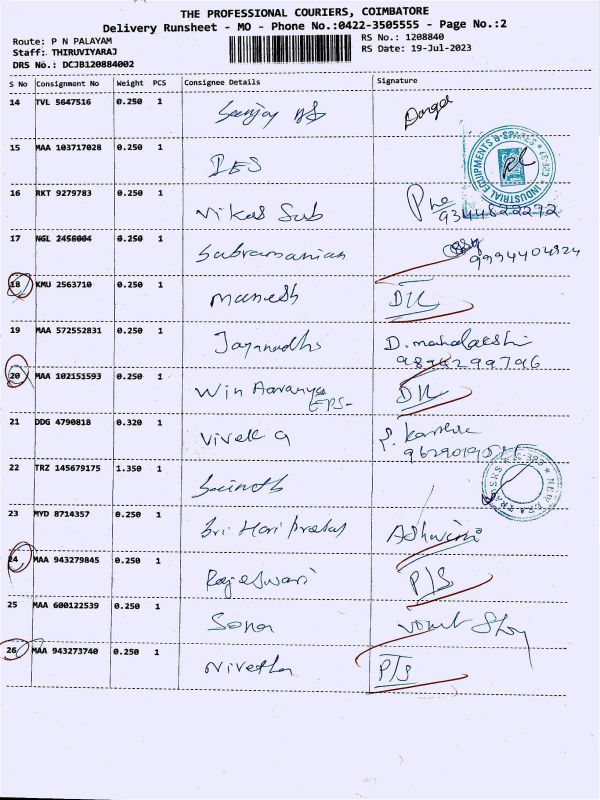 THE PROFESSIONAL COURIERS, COIMBATORE
Delivery Runsheet - MO - Phone No.:0422-3505555 - Page No.:2
Route: P N PALAYAM
RS No.: 1208840
Staff: THIRUVIYARAJ
RS Date: 19-Jul-2023
DRS No.: DCJB120884002
S No Consignment No Weight PCS Consignee Details Signature
14 TVL 5647516 0.250 1 Sanjay
15 MAA 103717028 0.250 1 IES
INDUSTRIAL EQUIPMENTS & SPARES * CBE-37 *
16 RKT 9279783 0.250 1 Vikas Sub
9344822272
17 NGL 2458004 0.250 1 Subramanian 9994404924
18 KMU 2563710 0.250 1 Manesh D/L
19 MAA 572552831 0.250 1 D. mahalakshi
20 MAA 102151593 0.250 1 Win Aaranya D/L
EPS-
21 DDG 4790818 0.320 1 Vivek G
22 TRZ 145679175 1.350 1
23 MYD 8714357 0.250 1 Sri Hari Ashwini
24 MAA 943279845 0.250 1 Rajeswari P/S
25 MAA 600122539 0.250 1 Sona
26 MAA 943273740 0.250 1 Nivetha P/S